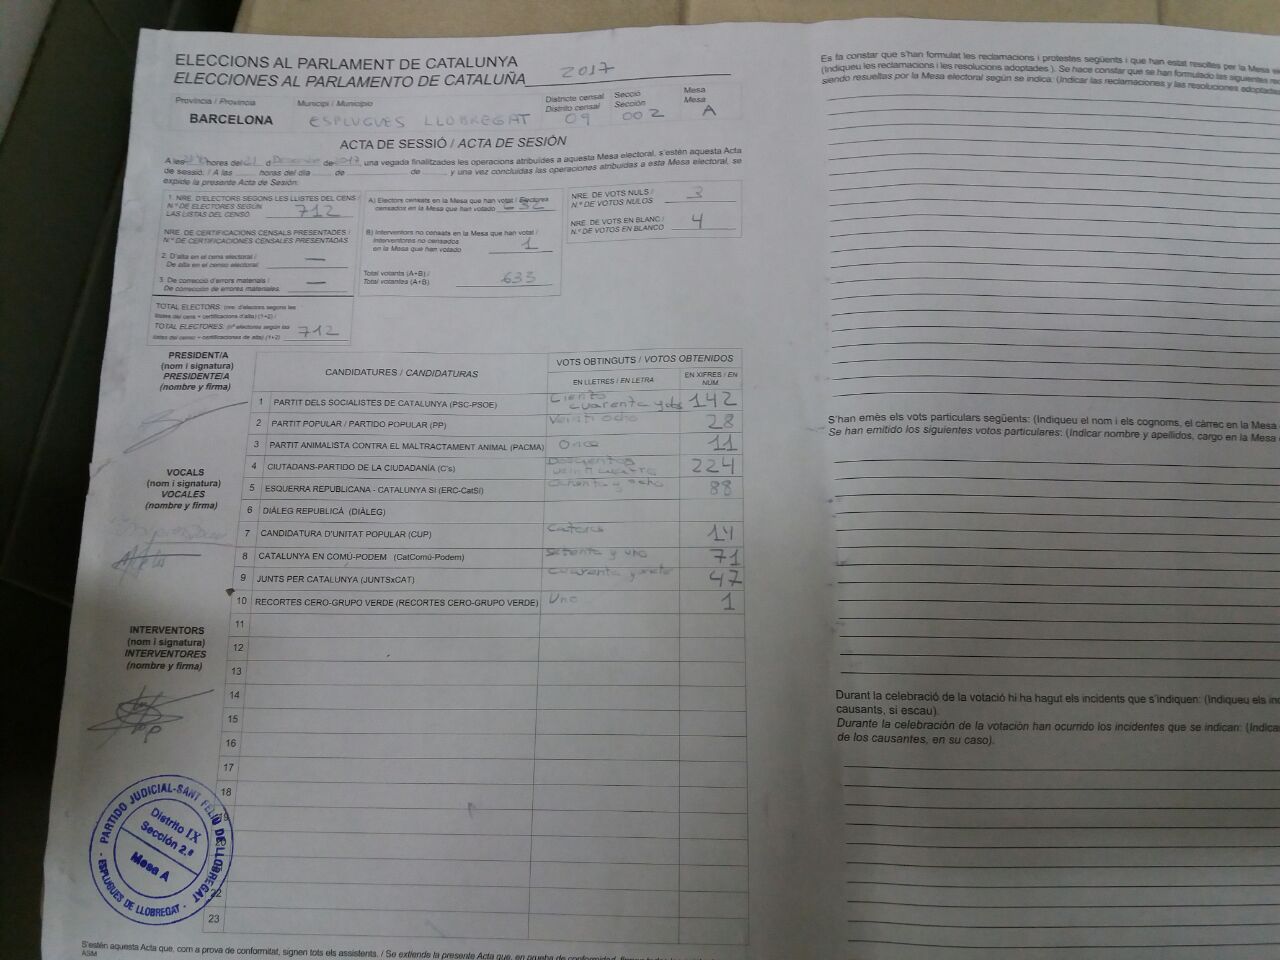 ELECCIONS AL PARLAMENT DE CATALUNYA
ELECCIONES AL PARLAMENTO DE CATALUÑA 2017
Província / Provincia Municipi / Municipio Districte censal Secció Mesa
Distrito censal Sección Mesa
BARCELONA ESPLUGUES LLOBREGAT 09 002 A
ACTA DE SESSIÓ / ACTA DE SESIÓN
A les hores del 21 d Desembre de 2017, una vegada finalitzades les operacions atribuïdes a aquesta Mesa electoral, s'estén aquesta Acta
de sessió. / A las horas del día de de y una vez concluidas las operaciones atribuidas a esta Mesa electoral, se
expide la presente Acta de Sesión:
1. NRE. D'ELECTORS SEGONS LES LLISTES DEL CENS /
N.º DE ELECTORES SEGÚN
LAS LISTAS DEL CENSO 712
NRE. DE CERTIFICACIONS CENSALS PRESENTADES /
N.º DE CERTIFICACIONES CENSALES PRESENTADAS
2. D'alta en el cens electoral /
De alta en el censo electoral —
3. De correcció d'errors materials /
De corrección de errores materiales. —
TOTAL ELECTORS: (nre. d'electors segons les
llistes del cens + certificacions d'alta) (1+2) /
TOTAL ELECTORES: (nº electores según las
listas del censo + certificaciones de alta) (1+2) 712
A) Electors censats en la Mesa que han votat / Electores
censados en la Mesa que han votado 632
B) Interventors no censats en la Mesa que han votat /
Interventores no censados
en la Mesa que han votado 1
Total votants (A+B) /
Total votantes (A+B) 633
NRE. DE VOTS NULS /
N.º DE VOTOS NULOS 3
NRE. DE VOTS EN BLANC /
N.º DE VOTOS EN BLANCO 4
PRESIDENT/A
(nom i signatura)
PRESIDENTE/A
(nombre y firma)
VOCALS
(nom i signatura)
VOCALES
(nombre y firma)
INTERVENTORS
(nom i signatura)
INTERVENTORES
(nombre y firma)
CANDIDATURES / CANDIDATURAS VOTS OBTINGUTS / VOTOS OBTENIDOS
EN LLETRES / EN LETRA EN XIFRES / EN NÚM
1 PARTIT DELS SOCIALISTES DE CATALUNYA (PSC-PSOE) Ciento cuarenta y dos 142
2 PARTIT POPULAR / PARTIDO POPULAR (PP) Veintiocho 28
3 PARTIT ANIMALISTA CONTRA EL MALTRACTAMENT ANIMAL (PACMA) Once 11
4 CIUTADANS-PARTIDO DE LA CIUDADANÍA (C's) Doscientos veinticuatro 224
5 ESQUERRA REPUBLICANA - CATALUNYA SÍ (ERC-CatSí) Ochenta y ocho 88
6 DIÀLEG REPUBLICÀ (DIÀLEG)
7 CANDIDATURA D'UNITAT POPULAR (CUP) Catorce 14
8 CATALUNYA EN COMÚ-PODEM (CatComú-Podem) Setenta y uno 71
9 JUNTS PER CATALUNYA (JUNTSxCAT) Cuarenta y siete 47
10 RECORTES CERO-GRUPO VERDE (RECORTES CERO-GRUPO VERDE) Uno 1
11
12
13
14
15
16
17
18
19
20
22
23
PARTIDO JUDICIAL-SANT FELIU DE LLOBREGAT
Distrito IX
Sección 2.ª
Mesa A
- ESPLUGUES DE LLOBREGAT -
S'estén aquesta Acta que, com a prova de conformitat, signen tots els assistents. / Se extiende la presente Acta que, en prueba de conformidad,
ASM
Es fa constar que s'han formulat les reclamacions i protestes següents i que han estat resoltes per la Mesa
(Indiqueu les reclamacions i les resolucions adoptades). Se hace constar que se han formulado las siguientes
siendo resueltas por la Mesa electoral según se indica: (Indicar las reclamaciones y las resoluciones adoptadas
S'han emès els vots particulars següents: (Indiqueu el nom i els cognoms, el càrrec en la Mesa
Se han emitido los siguientes votos particulares: (Indicar nombre y apellidos, cargo en la Mesa
Durant la celebració de la votació hi ha hagut els incidents que s'indiquen: (Indiqueu els
causants, si escau).
Durante la celebración de la votación han ocurrido los incidentes que se indican:
de los causantes, en su caso).